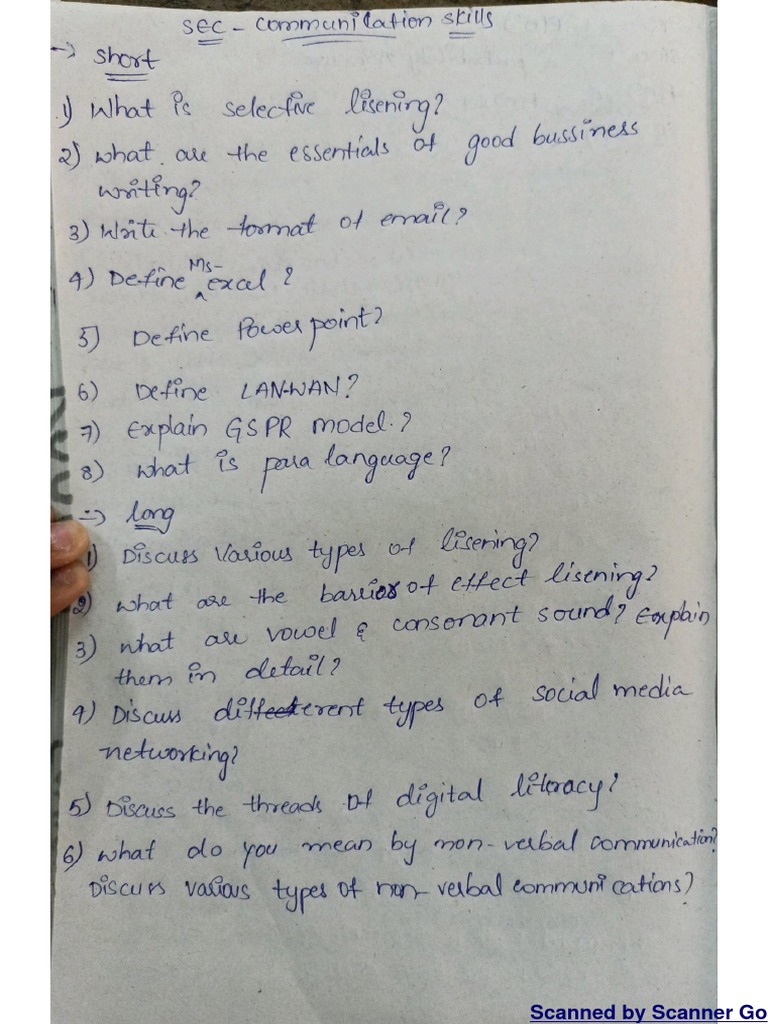 SEC - Communication skills
-> Short
1) What is selective lisening?
2) what are the essentials of good bussiness
writing?
3) Write the format of email?
4) Define Ms-excel?
5) Define Powerpoint?
6) Define LAN-WAN?
7) Explain GSPR model.?
8) what is para language?
=> long
1) Discuss various types of lisening?
2) what are the barriors of effect lisening?
3) what are vowel & consonant sound? Explain
them in detail?
4) Discuss different types of social media
networking?
5) Discuss the threads of digital literacy?
6) what do you mean by non-verbal communication?
Discuss various types of non-verbal communications?
Scanned by Scanner Go